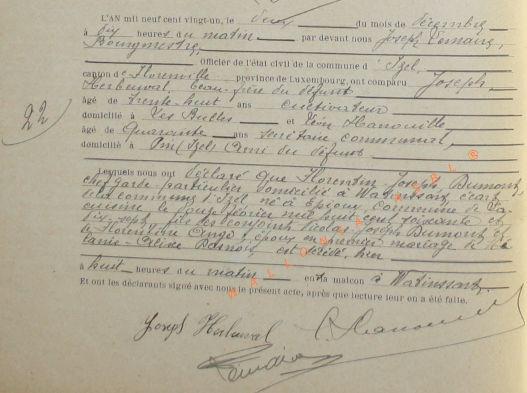 L'AN mil neuf cent vingt-un, le deux du mois de décembre
à dix heures du matin par devant nous Joseph Lemaire,
Bourgmestre,
Officier de l'état civil de la commune d'Izel,
canton de Florenville province de Luxembourg, ont comparu Joseph
Herbeuval, beau-frère du défunt
âgé de trente-huit ans cultivateur
domicilié à Les Bulles et Léon Hanouille
âgé de quarante ans secrétaire communal,
domicilié à Izel ami du défunt
22
Lesquels nous ont déclaré que Florentin Joseph Dumont
chef garde particulier domicilié à Watinssart, écart
de la commune d'Izel né à commune de
cuisine le février mil huit cent soixante et
dix-sept, fils des conjoints Nicolas Joseph Dumont et
de Florentine époux en premier mariage de
est décédé hier
à huit heures du matin en sa maison à Watinssart.
Et ont les déclarants signé avec nous le présent acte, après que lecture leur en a été faite.
WALLONIA
Joseph Herbeuval